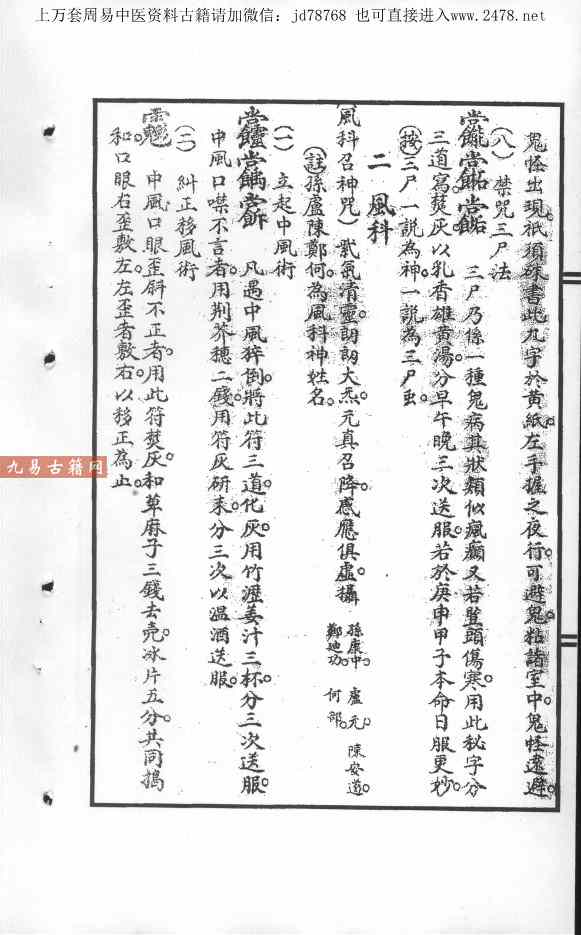 上万套周易中医资料古籍请加微信：jd78768 也可直接进入www.2478.net
鬼怪出現。祇須硃書此九字於黃紙。左手握之夜行。可避鬼。粘諸室中。鬼怪遠避。
（八）禁咒三尸法
三尸乃係一種鬼病其狀類似瘋癲又若豎頭傷寒。用此秘字分
三道寫。焚灰以乳香雄黃湯。分早午晚三次送服。若於庚申甲子本命日服更妙。
（按）三尸一說為神。一說為三尸虫。
二 風科
（風科召神咒）紫氣清靈。朗朗大炁。元真召降。感應俱虛。攝 孫康中。盧元。陳安道。鄭迪功。何部。
（註）孫盧陳鄭何。為風科神姓名。
（一）立起中風術
凡遇中風猝倒。將此符三道。化灰。用竹瀝姜汁三杯。分三次送服。
中風口噤不言者。用荆芥穗二錢。用符灰研末。分三次以温酒送服。
（二）糾正移風術
中風口眼歪斜不正者。用此符焚灰。和萆麻子三錢去壳。冰片五分。共同搗
和。口眼右歪敷左。左歪者敷右。以移正為止。
九易古籍网